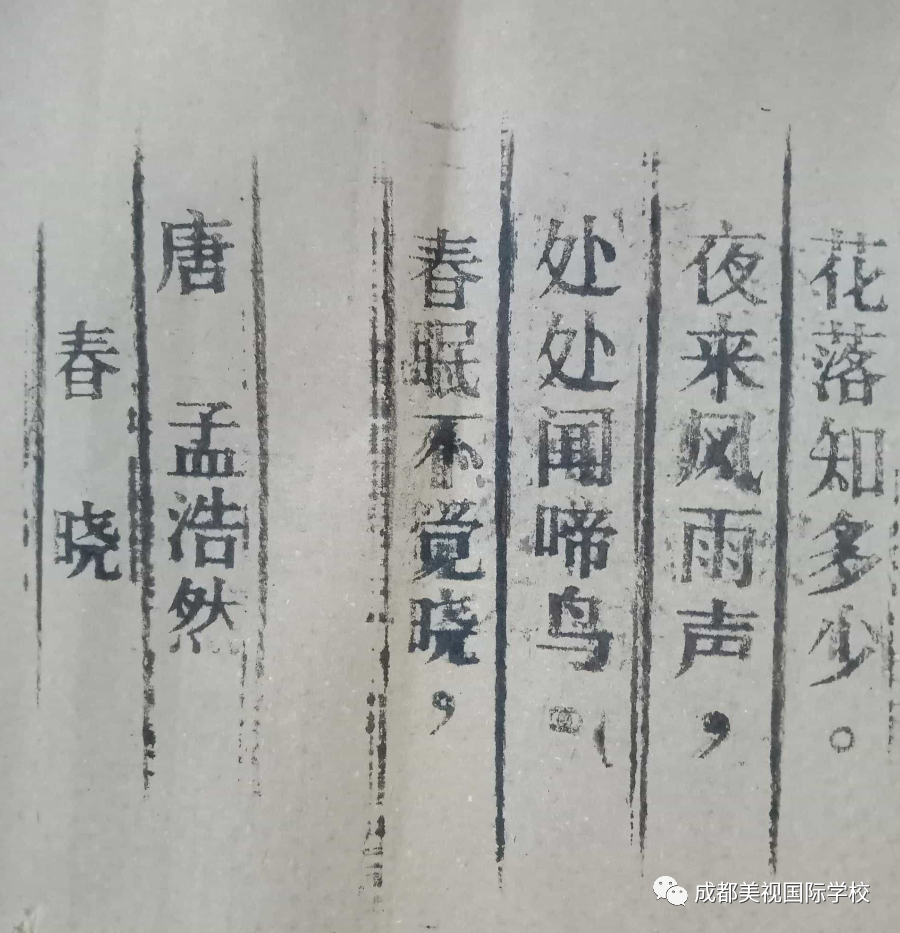 春晓
唐 孟浩然
春眠不觉晓，
处处闻啼鸟。
夜来风雨声，
花落知多少。
成都美视国际学校